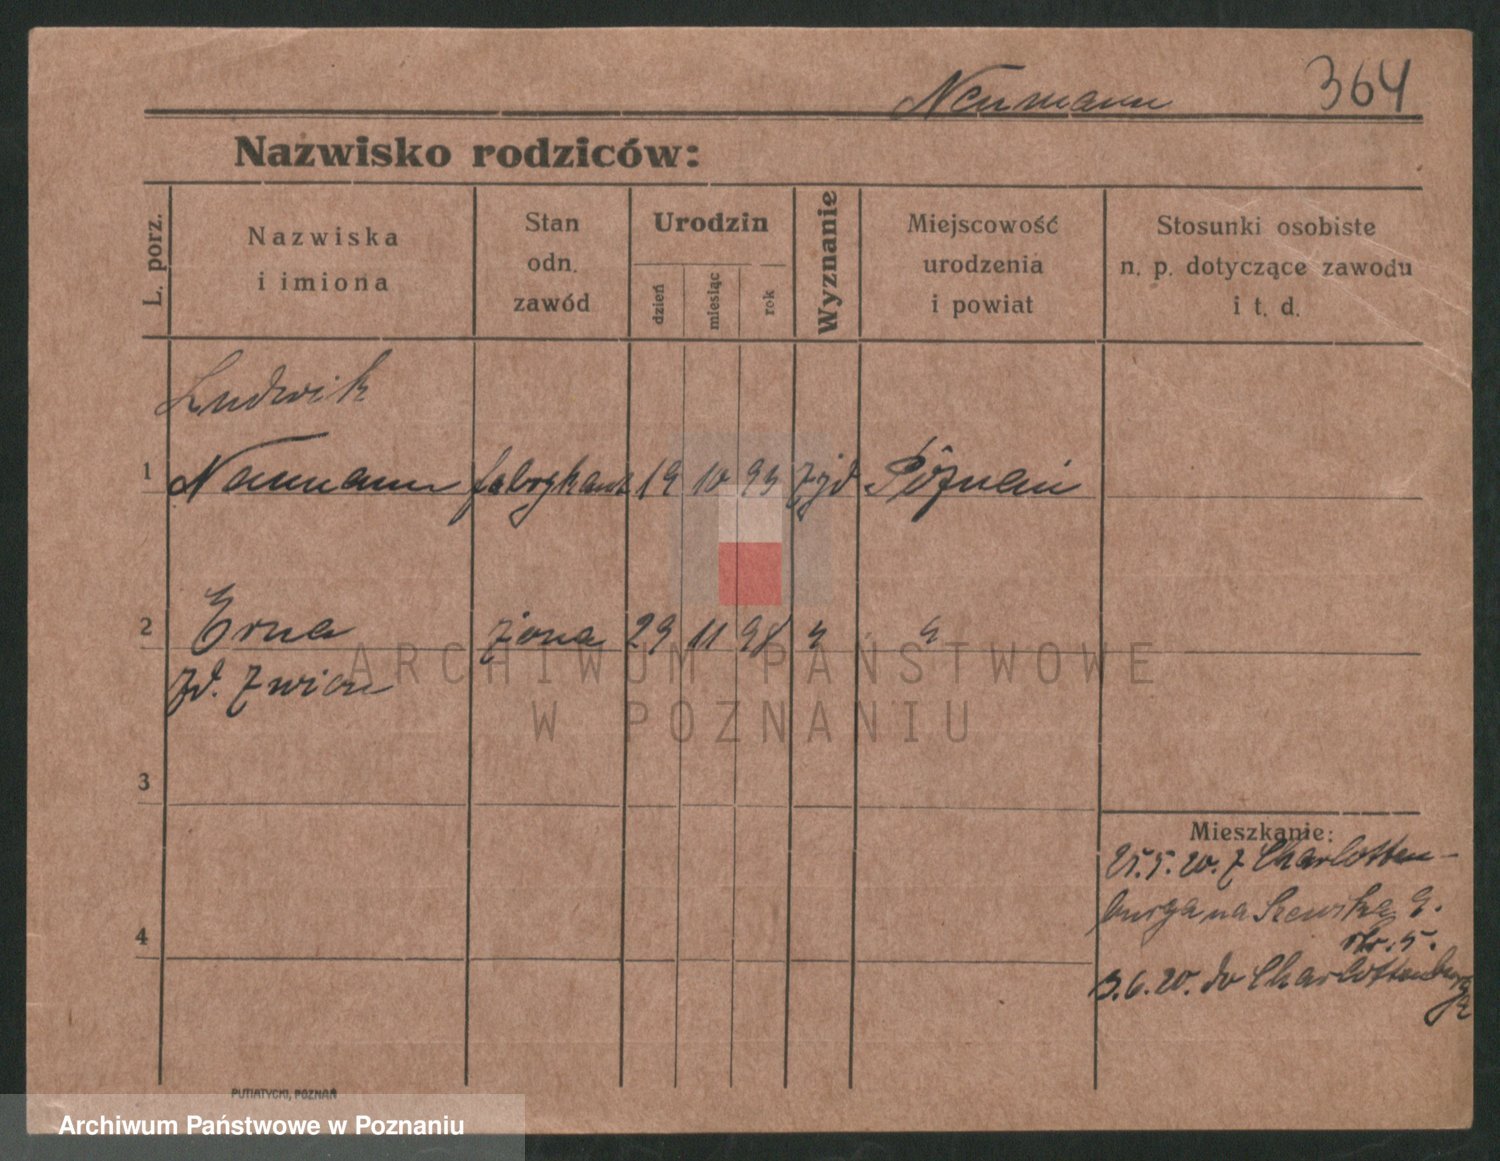 Neumann
364
Nazwisko rodziców:
L. porz.
Nazwiska
i imiona
Stan
odn.
zawód
Urodzin
dzień
miesiąc
rok
Wyznanie
Miejscowość
urodzenia
i powiat
Stosunki osobiste
n. p. dotyczące zawodu
i t. d.
Ludwik
1 Neumann fabrykant 19 10 93 żyd Poznań
2 Erna żona 29 11 98
zd.
ARCHIWUM PAŃSTWOWE
W POZNANIU
3
4
Mieszkanie:
25.5.20. z Charlotten-
burga na Szewską 9.
str. 5.
3.6.20. do Charlottenburga
PUTIATYCKI, POZNAŃ
Archiwum Państwowe w Poznaniu